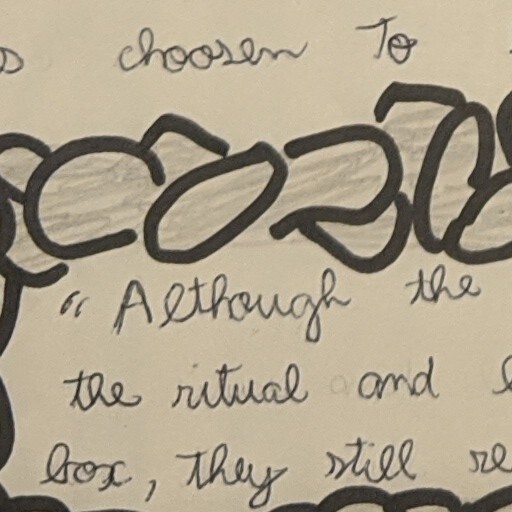 choosen To
"Although the
the ritual and
box, they still re